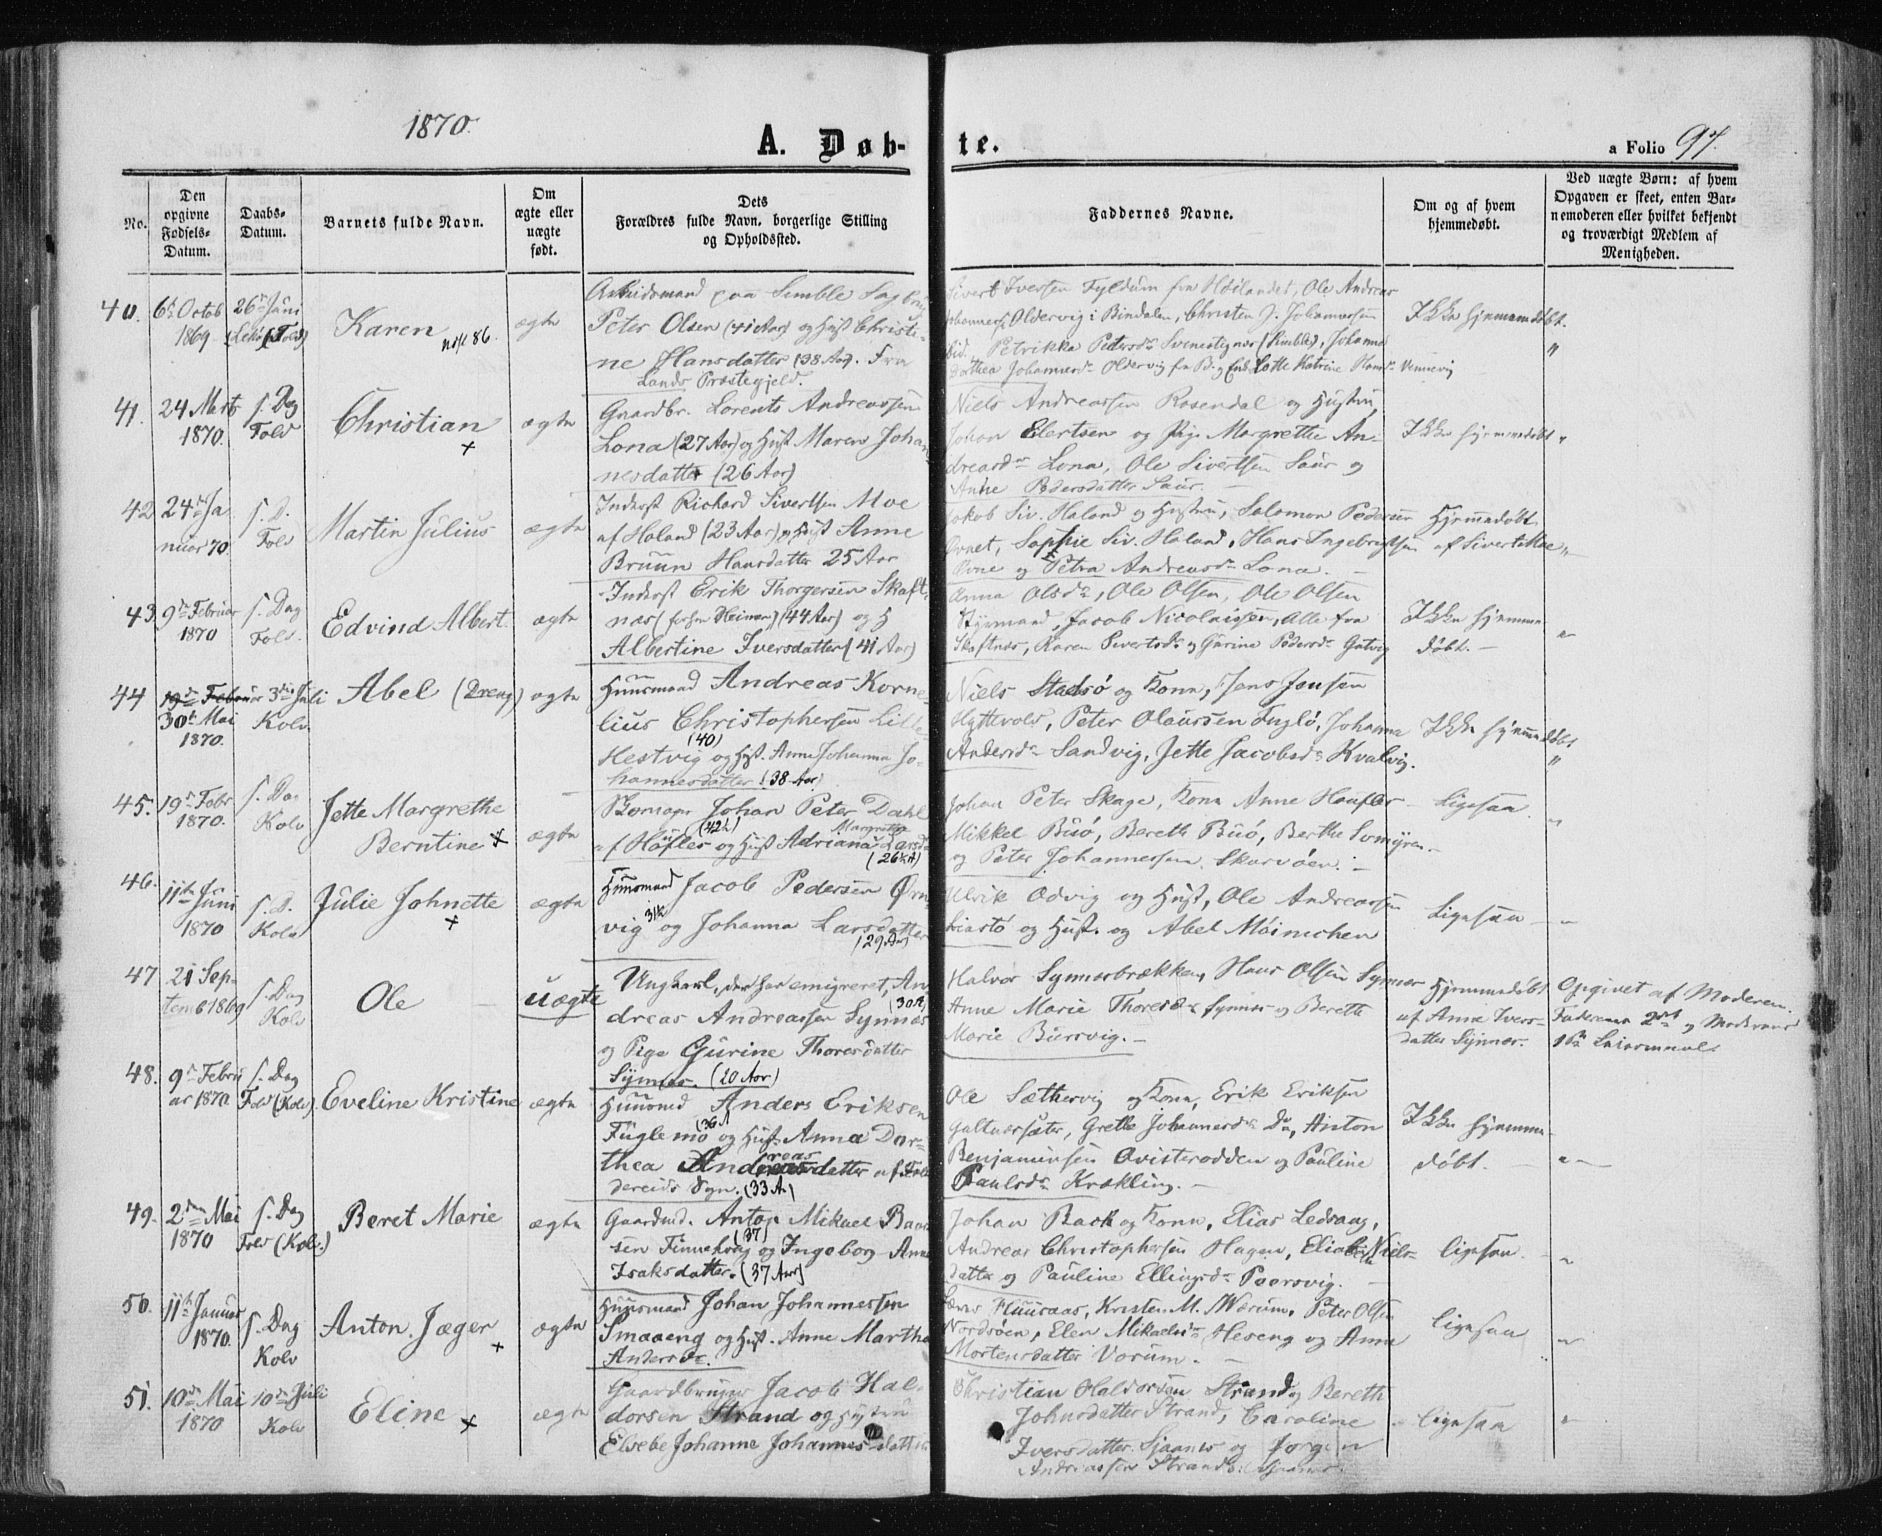 1870.
A. Døb-
te.
a Folio 97.
No.
Den opgivne Fødsels-Datum.
Daabs-Datum.
Barnets fulde Navn.
Om ægte eller uægte født.
Dets Forældres fulde Navn, borgerlige Stilling og Opholdssted.
Faddernes Navne.
Om og af hvem hjemmedøbt.
Ved uægte Børn: af hvem Opgaven er skeet, enten Barnemoderen eller hvilket bekjendt og troværdigt Medlem af Menigheden.
40. 6te Octob 26de Juni Karen ægte
1869 (Lekø) (Folv)
No 86.
Peter Olsen (41 Aar) og Hust Christi-
ne Hansdatter (38 Aar). Fra
Lands Præstegjeld.
Sivert Iversen Fyldum fra Høilandet, Ole Andreas
Johanness. Oldervig i Bindalen, Christen J. Johannessen
Dorthea Johannesd. Oldervig fra B. og Lotte Katrine Hansd. Vennevig
Ikke hjemmedøbt.
"
41. 24 Marts s. Dag Christian ægte
1870. Folv
Gaardbr. Lorents Andreassen
Lona (27 Aar) og Hust Maren Johan-
nesdatter (26 Aar)
Niels Andreassen Rosendal og Hustru,
Johan Elertsen og Pige Margrethe An-
dreasdr Lona, Ole Sivertsen Saur og
Anne Pedersdatter Saur.
Ikke hjemmedøbt "
42 24de Ja s. D. Martin Julius ægte
nuar 70. Folv
Inderst Richard Sivertsen Moe
af Haland (23 Aar) og Hust Anne
Bruun Hansdatter 25 Aar
Jakob Siv. Haland og Hustru, Salomon Pedersen
Ovnet, Sophie Siv. Haland, Hans Ingebrigtsen
Ovne og Petra Andreasdr Lona.
Hjemmedøbt
af Sivert Moe
43. 9de Februar s. Dag Edvind Albert. ægte
1870 Folv.
Inderst Erik Thorgersen Skaft-
næs (44 Aar) og H
Albertine Iversdatter (41 Aar)
Anna Olsdr, Ole Olsen, Ole Olsen
Styrmand, Jacob Nicolaisen, alle fra
Skaftnæs, Karen Sivertsdr og Gurine Pedersdr Gutvig
Ikke hjemme
døbt.
44 19de Februar 3die Juli Abel (Dreng) ægte
30te Mai Kolv.
1870.
Huusmand Andreas Korne
lius Christophersen Lille-
(40)
Hestvig og Hust. Anne Johanna Jo-
hannesdatter (38 Aar)
Niels Stadsø og Kone, Jens Jensen
Hyttevold, Peter Olaussen Fuglø, Johanna
Andersdr Sandvig, Jette Jacobsdr Kvalvig.
Ikke hjemmedøbt
"
45. 19de Febr s. Dag Jette Margrethe
1870. Kolv Berntine ægte
Johan Peter Dahl
(42)
Margrethe
af Høfles og Hust Adriana Larsd
(26)
Johan Peter Skage, Kone Anne Høfles
Mikkel Buø, Bereth Buø, Berthe Sømyren
og Peter Johannessen Skarvøen.
Ligesaa
46. 11te Juni s. D. Julie Johnette ægte
1870 Kolv
Huusmand Jacob Pedersen Ørn-
vig og Johanna Larsdatter
(29 Aar)
Ulrik Odvig og Hust, Ole Andreassen
Liastø og Hust. og Abel Møinichen
Ligesaa
47 21 Sep- s. Dag Ole uægte
temb 1869 Kolv
Ungkarl, der har emigreret, An
(30 A)
dreas Andreassen Synnæs
og Pige Gurine Thoresdatter
Synnæs. (20 Aar)
Halvor Synnæsbrækken, Hans Olsen Synnæs
Anne Marie Thoresdr Synnæs og Bereth
Marie Bursvig.
Hjemmedøbt
af Anne Ivers-
datter Synnæs.
Opgivet af Moderen.
Faderens 2det og Moderens
1ste Leiermaal.
48. 9de Febru s. Dag Eveline Kristine ægte
ar 1870 Folv (Kolv).
Huusmd Anders Eriksen
(36 A
Fuglemo og Hust Anna Dor-
thea Andreasdatter af Fol
dereids Sgn. (33 A)
Ole Sæthervig og Kone, Erik Eriksen
Galtnæssæter, Grethe Johannesdr Do, Anton
Benjaminsen Qvisterodden og Pauline
Paulsdr Krækling.
Ikke hjemme-
døbt.
49. 2den Mai s. Dag Beret Marie ægte
1870 Folv (Kolv.)
Gaardmd. Anton Mikael Baa
(37)
sen Finnehoug og Ingeborg Anna
Isaksdatter. (37 Aar)
Johan Bach og Kone, Elias Ledsaag,
Andreas Christophersen Hagen, Elia Niels-
datter og Pauline Ellingsdr Peersvig.
ligesaa.
50. 11te Januar s. Dag Anton Jæger ægte
1870. Kolv
Huusmand Johan Johannessen
Smaaeng og Hust. Anne Martha
Andersdr.
Huusaas, Kristen M. Værum, Peter Olsen
Nordsøen, Elen Mikaelsdr Heseng og Anne
Mortensdatter Vorum.
ligesaa
51. 10de Mai 10de Juli Eline ægte
1870 Kolv
Gaardbruger Jacob Hal-
dorsen Strand og Hustru
Elsebe Johanne Johannesdatter
Christian Haldorsen Strand og Bereth
Johnsdatter Strand, Caroline
Iversdatter Sjaanes og Jørgen
Andreassen Strand
ligesaa